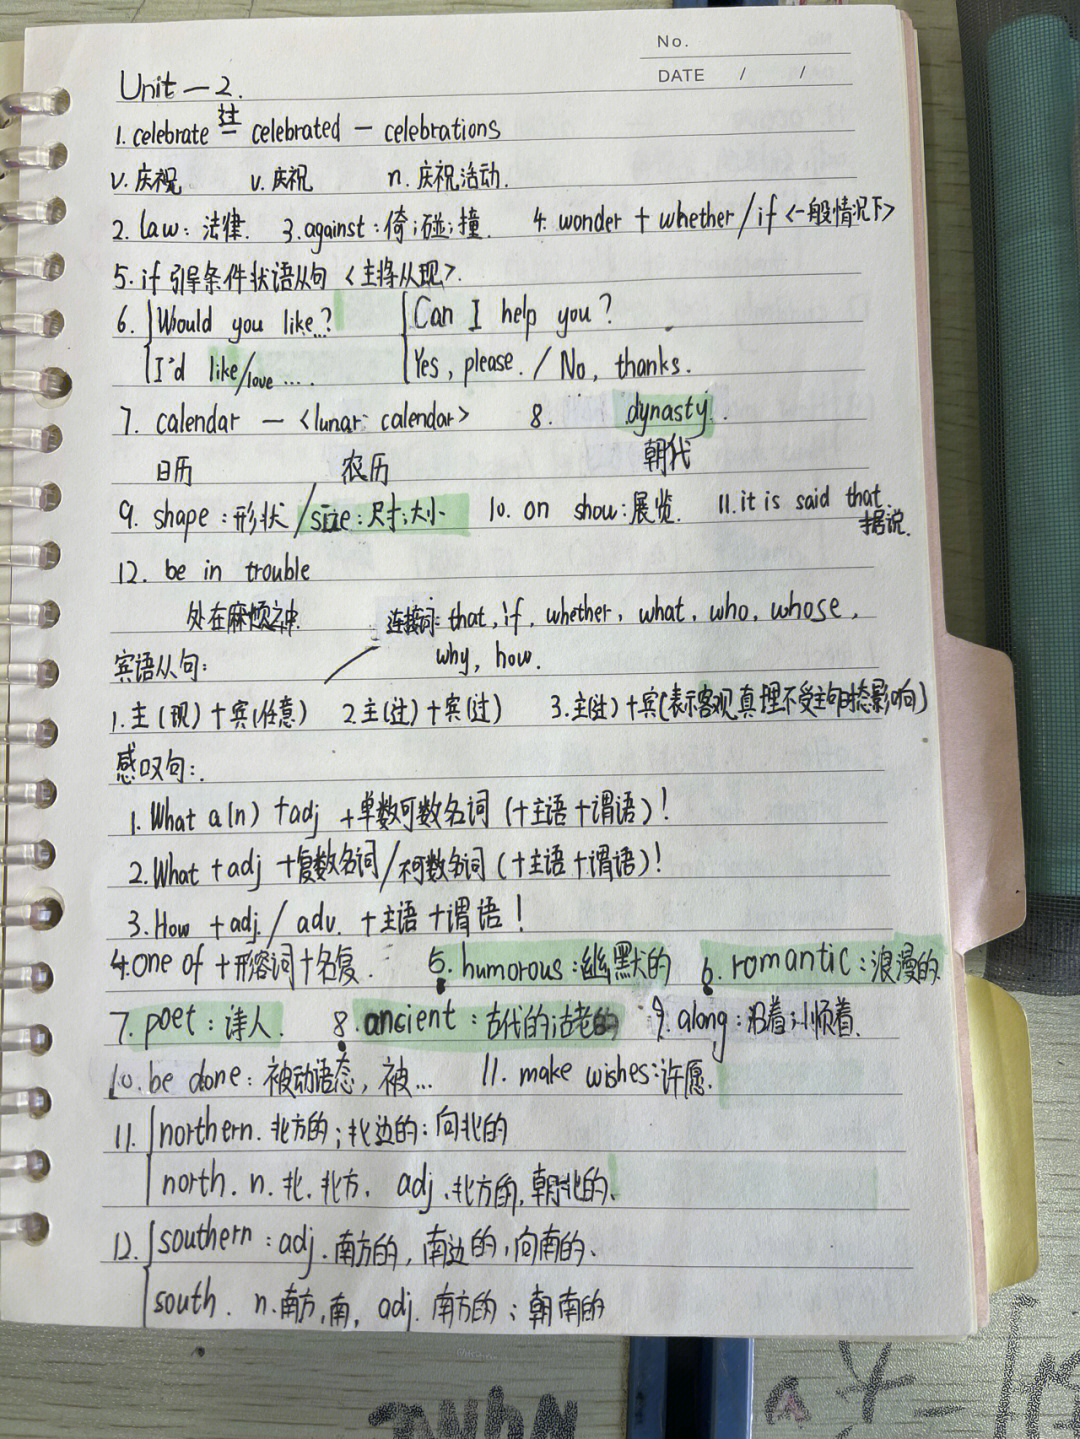 No.
DATE / /
Unit — 2.
1. celebrate 过 — celebrated — celebrations
v. 庆祝 v. 庆祝 n. 庆祝活动.
2. law: 法律. 3. against: 倚;碰;撞. 4. wonder + whether / if <一般情况下>
5. if 引导条件状语从句 <主将从现>.
6. Would you like...? Can I help you?
I'd like/love .... Yes, please. / No, thanks.
7. calendar — <lunar calendar> 8. dynasty.
日历 农历 朝代
9. shape: 形状 / size: 尺寸;大小 10. on show: 展览. 11. it is said that
据说.
12. be in trouble
处在麻烦之中 连接词: that, if, whether, what, who, whose,
宾语从句: why, how.
1. 主(现)+宾(任意) 2 主(过)+宾(过) 3. 主(过)+宾(表示客观真理不受主句时态影响)
感叹句:.
1. What a(n) + adj + 单数可数名词 (+主语+谓语)!
2. What + adj + 复数名词/不可数名词 (+主语+谓语)!
3. How + adj. / adv. + 主语 + 谓语!
4. one of + 形容词 + 名复. 5. humorous: 幽默的 6. romantic: 浪漫的
7. poet: 诗人. 8. ancient: 古代的;古老的 9. along: 沿着;顺着.
10. be done: 被动语态, 被... 11. make wishes: 许愿.
11. northern. 北方的; 北边的: 向北的
north. n. 北. 北方. adj. 北方的, 朝北的.
12. southern: adj. 南方的, 南边的, 向南的.
south. n. 南方, 南, adj. 南方的; 朝南的